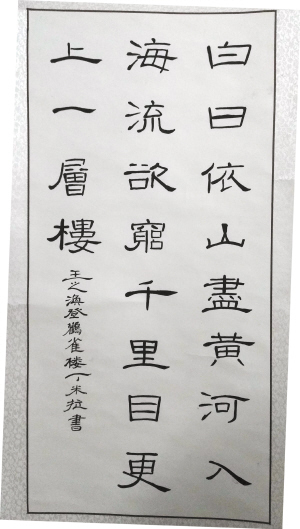 白日依山盡黃河入
海流欲窮千里目更
上一層樓
王之渙登鸛雀樓丁米拉書